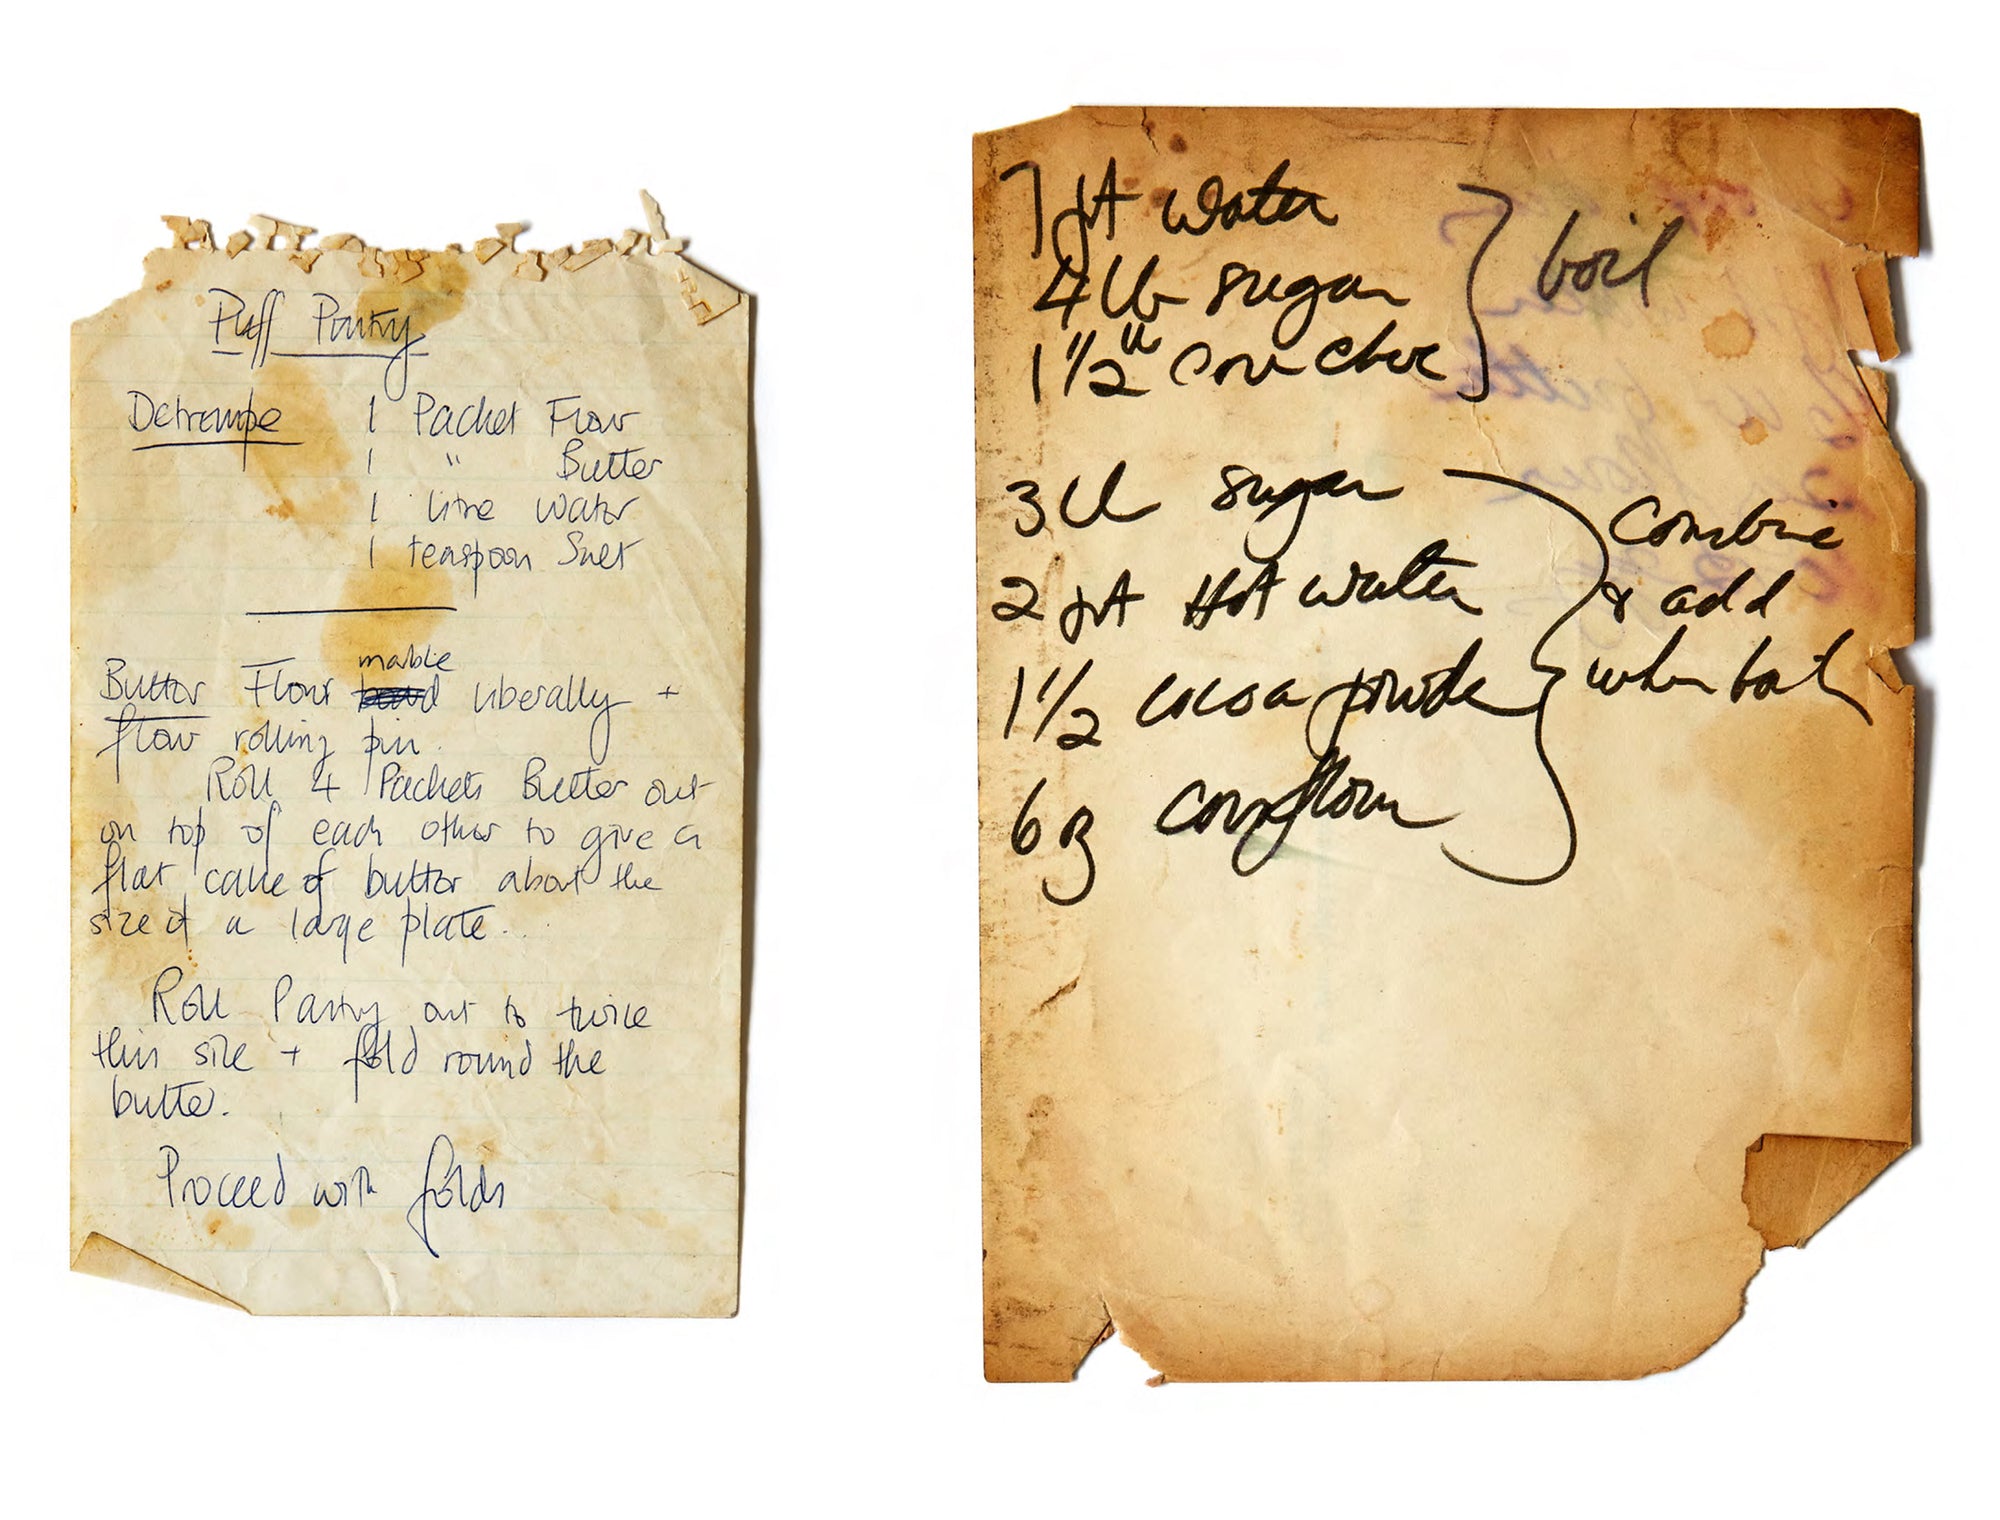 Puff Pastry
Detrempe 1 Packet Flour
1 " Butter
1 litre water
1 teaspoon Salt
marble
Butter Flour liberally +
flour rolling pin.
Roll 4 Packets Butter out
on top of each other to give a
flat cake of butter about the
size of a large plate...
Roll Pastry out to twice
this size + fold round the
butter.
Proceed with folds
7 pt water
4 lb sugar
1 1/2 " couv choc
boil
3 lb sugar
2 pt Hot water
1 1/2 cocoa powder
6 oz cornflour
Combine
& add
when boil